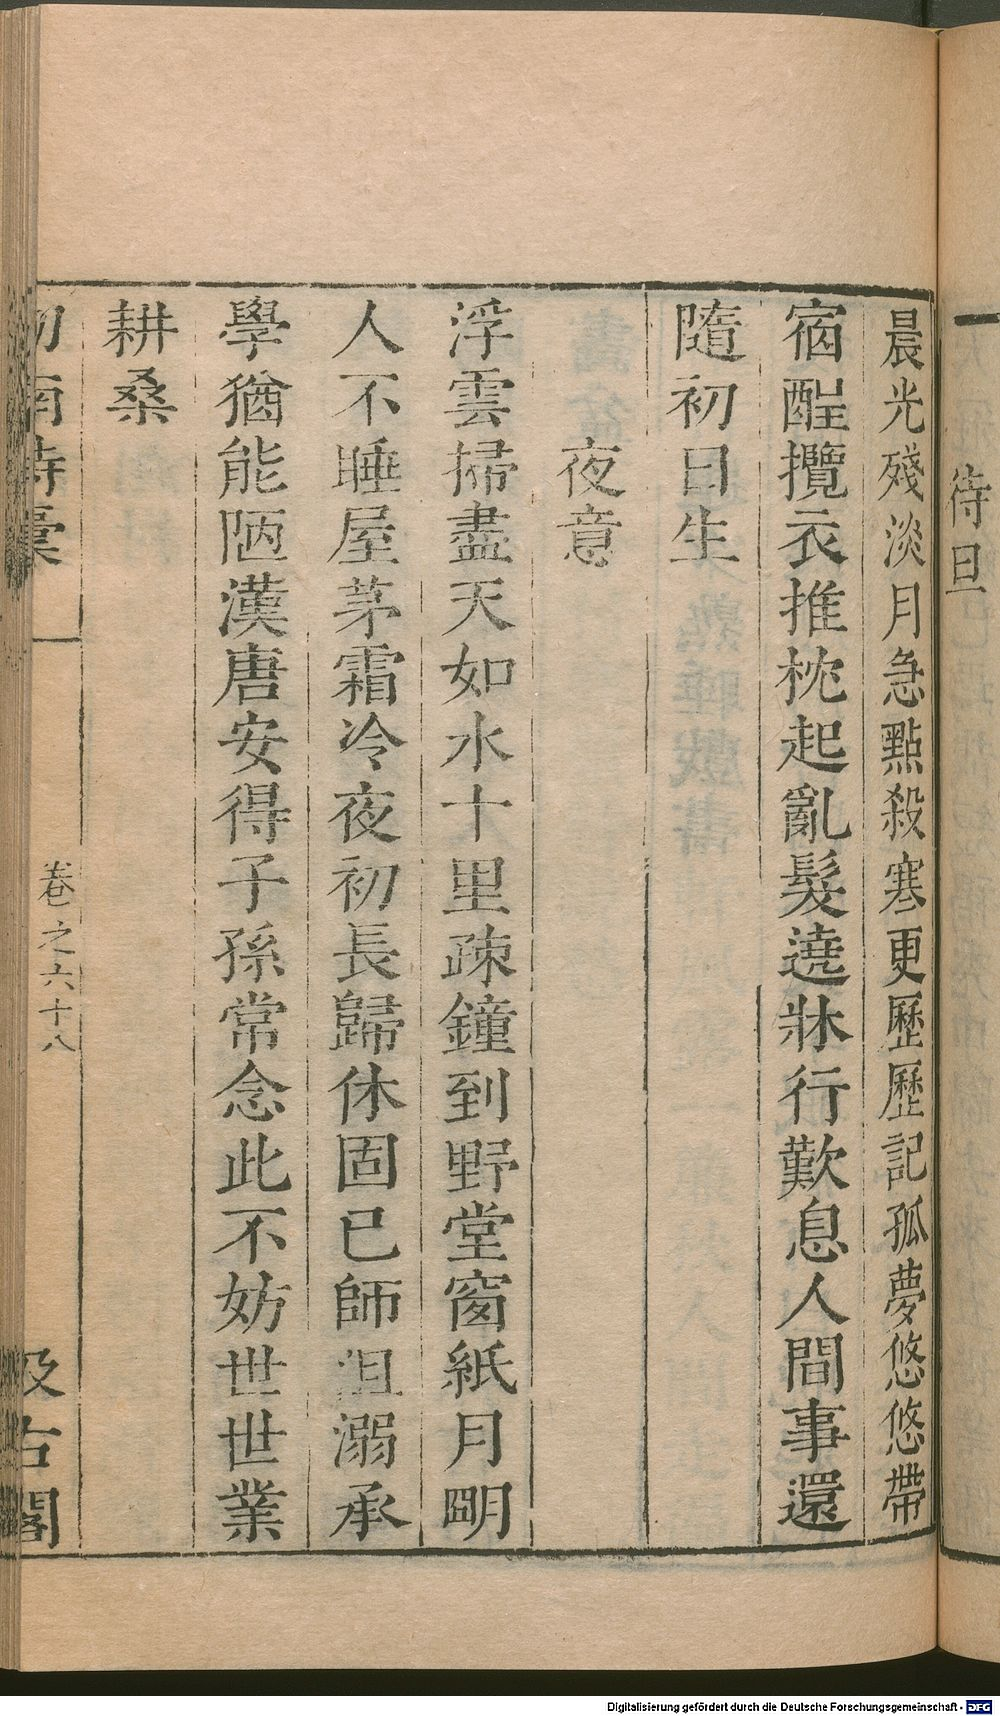 待旦
晨光殘淡月急點殺寒更歷歷記孤夢悠悠帶
宿酲攬衣推枕起亂髮遶牀行歎息人間事還
隨初日生
夜意
浮雲掃盡天如水十里疎鐘到野堂窗紙月朙
人不睡屋茅霜冷夜初長歸休固已師沮溺承
學猶能陋漢唐安得子孫常念此不妨世世業
耕桑
劍南詩稾
卷之六十八
汲古閣
Digitalisierung gefördert durch die Deutsche Forschungsgemeinschaft - DFG